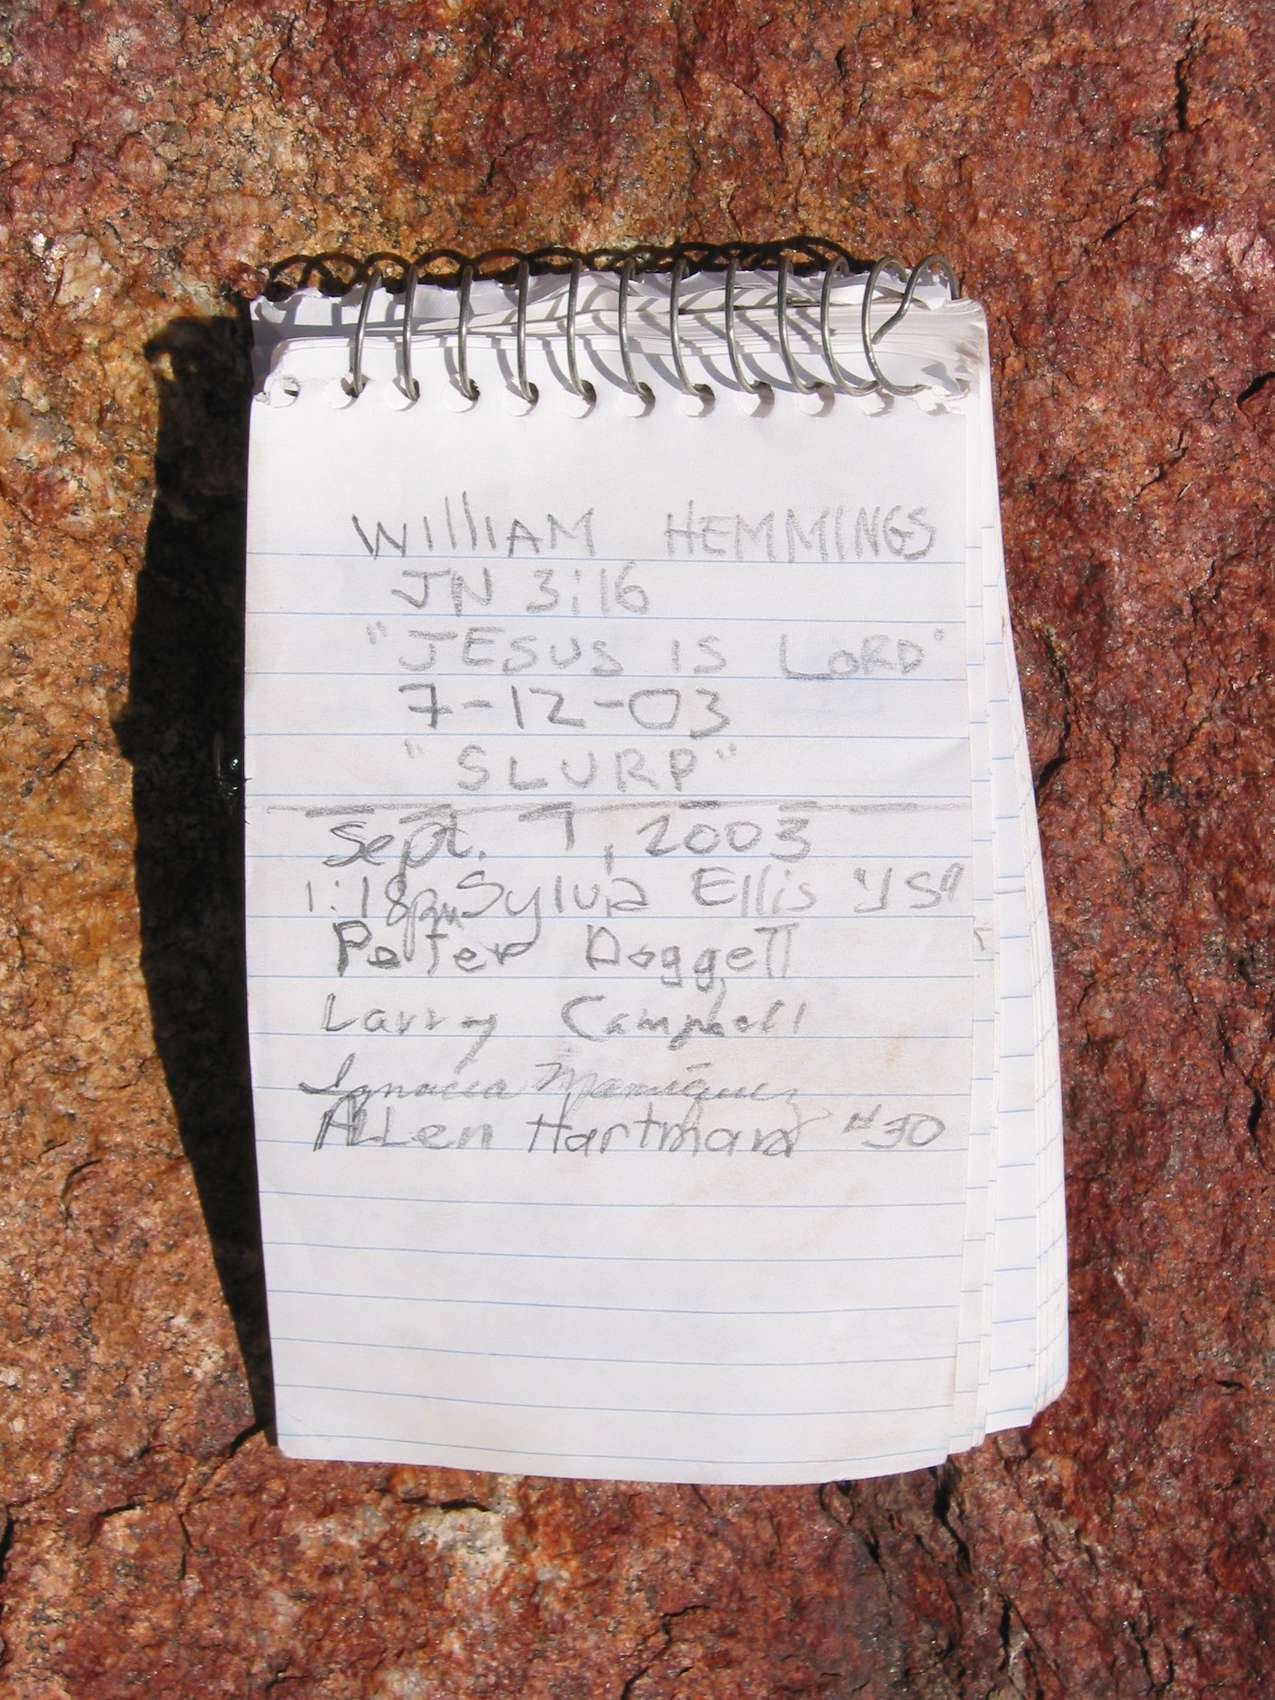 WIllIAM HEMMINGS
JN 3:16
"JESUS IS LORD"
7-12-03
"SLURP"
Sept. 7, 2003
1:18pm Sylvia Ellis "JS"
Peter Doggett
Larry Campbell
Ignacia Manriquez
ALLen Hartman #30